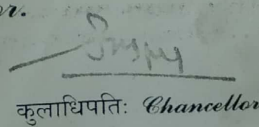 r.
कुलाधिपतिः Chancellor